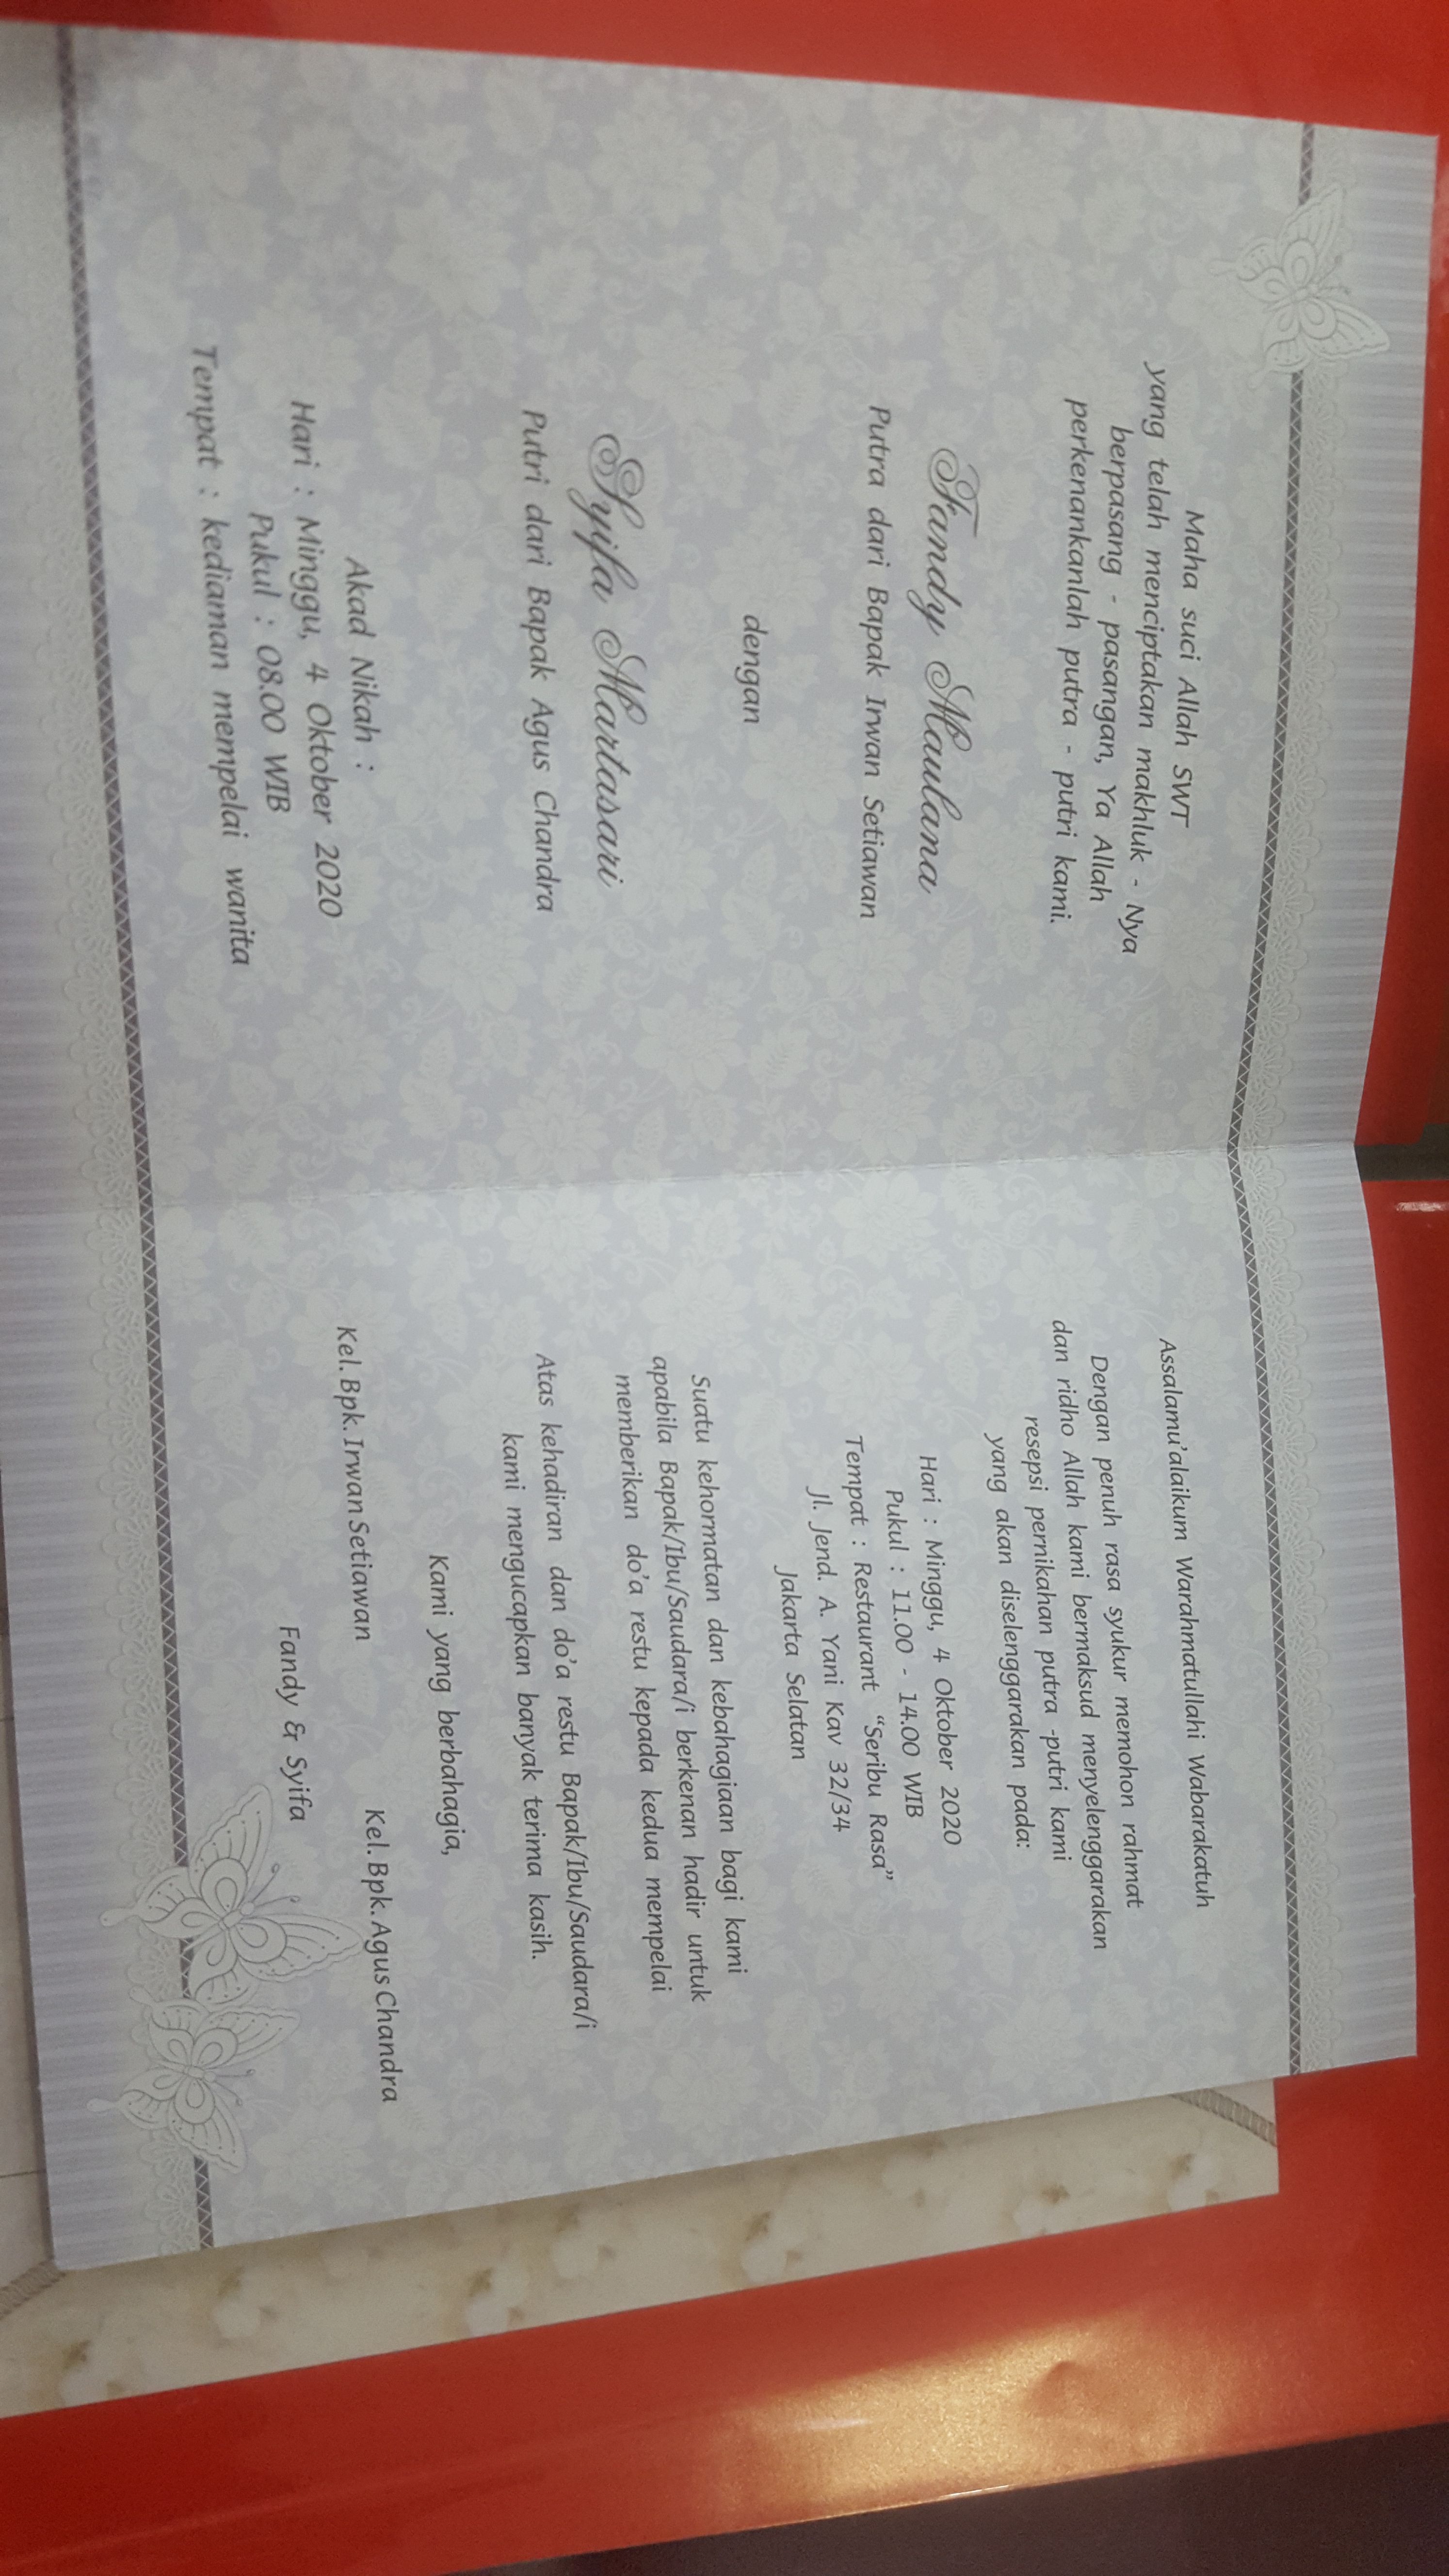 Maha suci Allah SWT
yang telah menciptakan makhluk - Nya
berpasang - pasangan, Ya Allah
perkenankanlah putra - putri kami.
Fandy Maulana
Putra dari Bapak Irwan Setiawan
dengan
Syifa Martasari
Putri dari Bapak Agus Chandra
Akad Nikah :
Hari : Minggu, 4 Oktober 2020
Pukul : 08.00 WIB
Tempat : kediaman mempelai wanita
Assalamu'alaikum Warahmatullahi Wabarakatuh
Dengan penuh rasa syukur memohon rahmat
dan ridho Allah kami bermaksud menyelenggarakan
resepsi pernikahan putra -putri kami
yang akan diselenggarakan pada:
Hari : Minggu, 4 Oktober 2020
Pukul : 11.00 - 14.00 WIB
Tempat : Restaurant “Seribu Rasa”
Jl. Jend. A. Yani Kav 32/34
Jakarta Selatan
Suatu kehormatan dan kebahagiaan bagi kami
apabila Bapak/Ibu/Saudara/i berkenan hadir untuk
memberikan do'a restu kepada kedua mempelai
Atas kehadiran dan do'a restu Bapak/Ibu/Saudara/i
kami mengucapkan banyak terima kasih.
Kami yang berbahagia,
Kel. Bpk. Irwan Setiawan Kel. Bpk. Agus Chandra
Fandy & Syifa